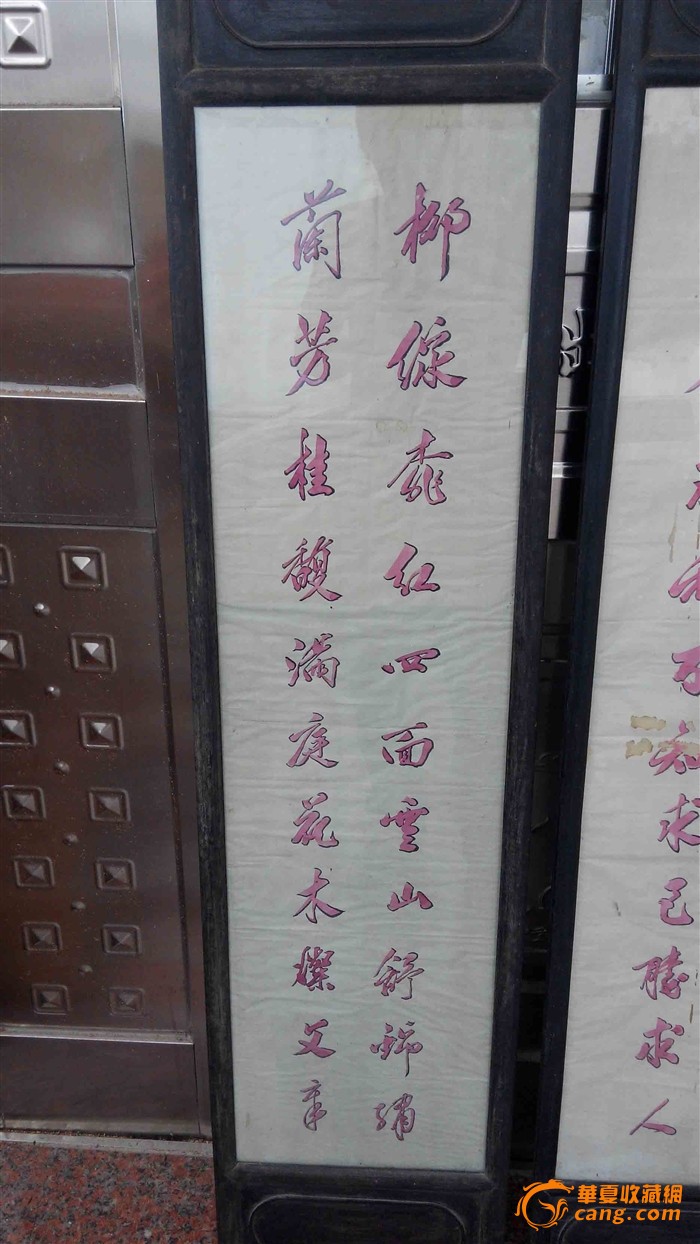 求己勝求人
柳綠桃紅四面雲山舒錦繡
蘭芳桂馥滿庭花木燦文章
華夏收藏網
cang.com